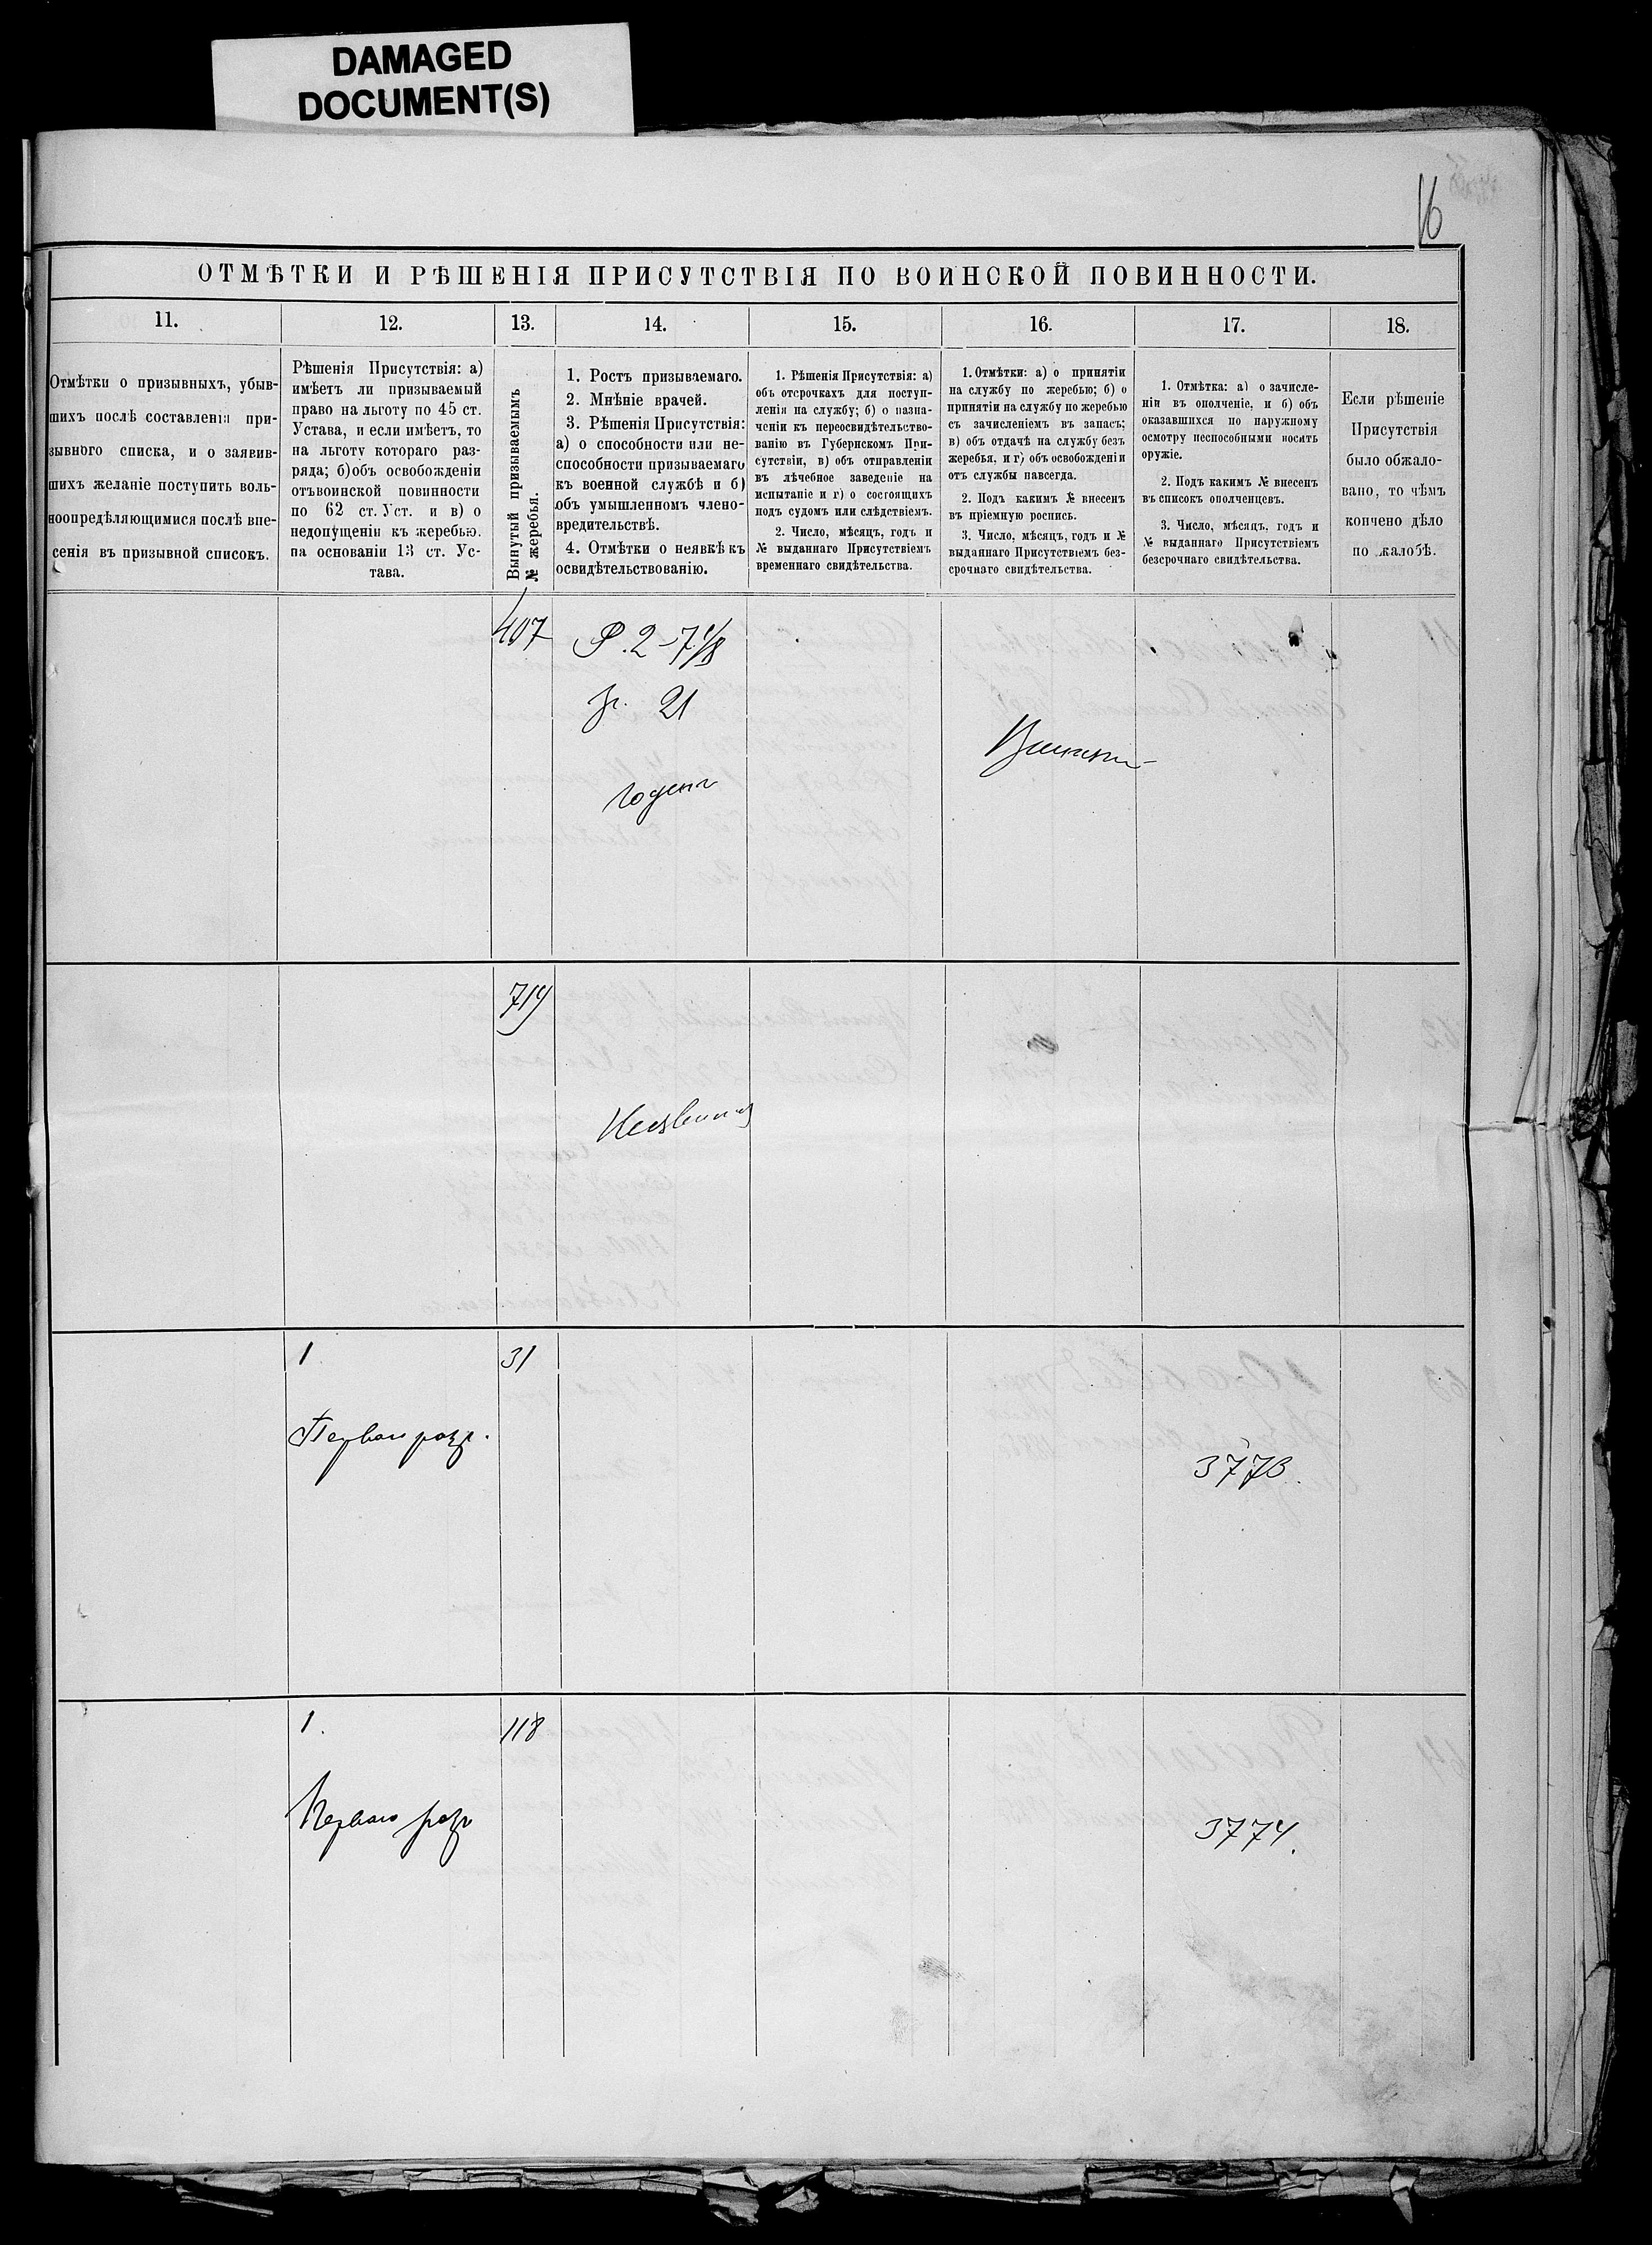 DAMAGED
DOCUMENT(S)
16
ОТМѢТКИ И РѢШЕНІЯ ПРИСУТСТВІЯ ПО ВОИНСКОЙ ПОВИННОСТИ.
11.
12.
13.
14.
15.
16.
17.
18.
Отмѣтки о призывныхъ, убыв-
шихъ послѣ составленія при-
зывного списка, и о заявив-
шихъ желаніе поступить воль-
ноопредѣляющимися послѣ вне-
сенія въ призывной списокъ.
Рѣшенія Присутствія: а)
имѣетъ ли призываемый
право на льготу по 45 ст.
Устава, и если имѣетъ, то
на льготу котораго раз-
ряда; б) объ освобожденіи
отъ воинской повинности
по 62 ст. Уст. и в) о
недопущеніи къ жеребью.
на основаніи 13 ст. Ус-
тава.
Вынутый призываемымъ
№ жеребья.
1. Ростъ призываемаго.
2. Мнѣніе врачей.
3. Рѣшенія Присутствія:
а) о способности или не-
способности призываемаго
къ военной службѣ и б)
объ умышленномъ члено-
вредительствѣ.
4. Отмѣтки о неявкѣ къ
освидѣтельствованію.
1. Рѣшенія Присутствія: а)
объ отсрочкахъ для поступ-
ленія на службу; б) о назна-
ченіи къ переосвидѣтельство-
ванію въ Губернскомъ При-
сутствіи, в) объ отправленіи
въ лѣчебное заведеніе на
испытаніе и г) о состоящихъ
подъ судомъ или слѣдствіемъ.
2. Число, мѣсяцъ, годъ и
№ выданнаго Присутствіемъ
временнаго свидѣтельства.
1. Отмѣтки: а) о принятіи
на службу по жеребью; б) о
принятіи на службу по жеребью
съ зачисленіемъ въ запасъ;
в) объ отдачѣ на службу безъ
жеребья, и г) объ освобожденіи
отъ службы навсегда.
2. Подъ какимъ № внесенъ
въ пріемную роспись.
3. Число, мѣсяцъ, годъ и №
выданнаго Присутствіемъ без-
срочнаго свидѣтельства.
1. Отмѣтка: а) о зачисле-
ніи въ ополченіе, и б) объ
оказавшихся по наружному
осмотру неспособными носить
оружіе.
2. Подъ какимъ № внесенъ
въ списокъ ополченцевъ.
3. Число, мѣсяцъ, годъ и
№ выданнаго Присутствіемъ
безсрочнаго свидѣтельства.
Если рѣшеніе
Присутствія
было обжало-
вано, то чѣмъ
кончено дѣло
по жалобѣ.
407
Р. 2-7 1/8
гр. 21
годенъ
719
Неявился
1
31
Перваго разр.
3773.
1.
118
Перваго разр
3774.